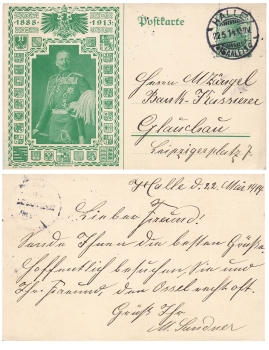 1888-1913
Postkarte
HALLE
22.5.14
Herrn M. Züngel
Bank-Kassierer
Glauchau
Leipzigerplatz 7.
Halle d. 22. Mai 1914.
Lieber Freund!
Sende Ihnen die besten Grüße.
Hoffentlich besuchen Sie und
Ihr Freund, den
Gruß Ihr
M. Lindner